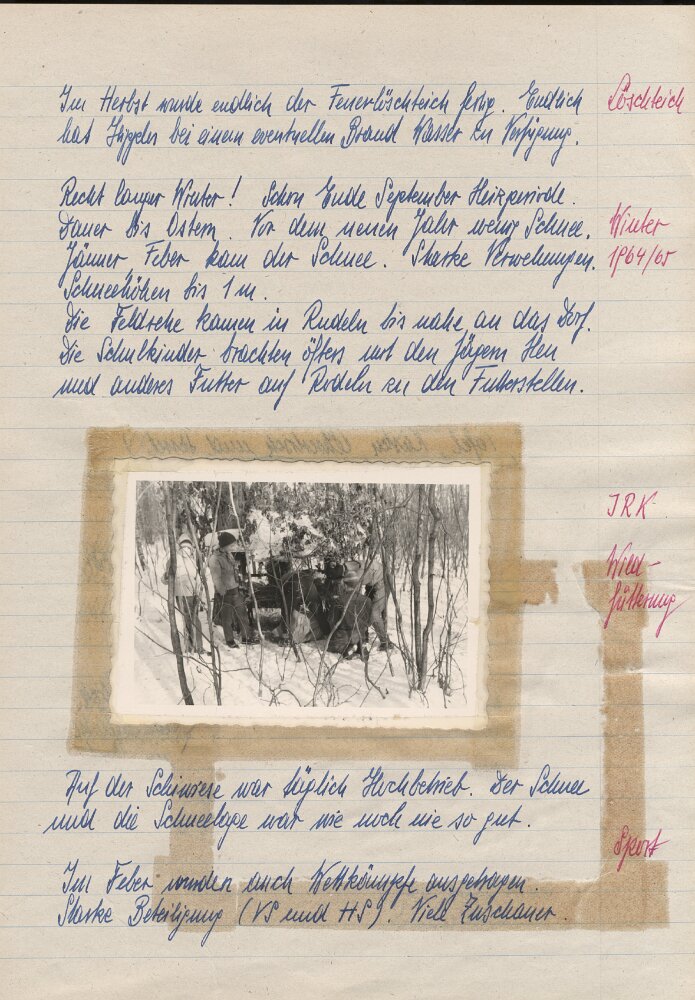 Im Herbst wurde endlich der Feuerlöschteich fertig. Endlich
Löschteich
hat bei einem eventuellen Brand Wasser zu Verfügung.
Recht langer Winter! Schon Ende September Heizperiode.
Dauer bis Ostern. Vor dem neuen Jahr wenig Schnee.
Winter
Jänner, Feber kam der Schnee. Starke Verwehungen.
1964/65
Schneehöhen bis 1 m.
Die Feldrehe kamen in Rudeln bis nahe an das Dorf.
Die Schulkinder brachten öfters mit den Jägern Heu
und anderes Futter auf Rodeln zu den Futterstellen.
JRK
Wild-
fütterung
Auf der Schiwiese war täglich Hochbetrieb. Der Schnee
und die Schneelage war wie noch nie so gut.
Sport
Im Feber wurden auch Wettkämpfe ausgetragen.
Starke Beteiligung (VS und HS). Viele Zuschauer.